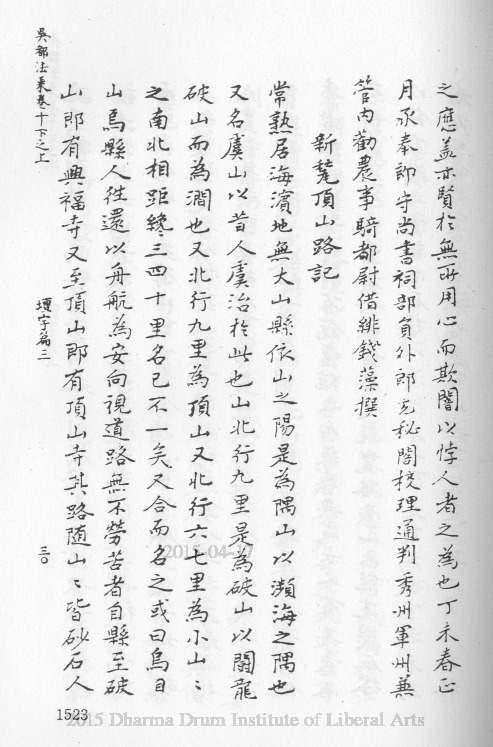 之應盖亦賢於無所用心而欺闇以悖人者之為也丁未春正
月承奉郎守尚書祠部員外郎充秘閣校理通判秀州軍州兼
管內勸農事騎都尉借緋錢藻撰
新甃頂山路記
常熟居海濱地無大山縣依山之陽是為隅山以瀕海之隅也
又名虞山以昔人虞治於此也山北行九里是為破山以鬪龍
破山而為澗也又北行九里為頂山又北行六七里為小山〻
之南北相距纔三四十里名已不一矣又合而名之或曰烏目
山焉縣人往還以舟航為安向視道路無不勞苦者自縣至破
山即有興福寺又至頂山即有頂山寺其路随山〻皆砂石人
吳都法乘卷十下之上
壇字篇三
三〇
1523
2015-04-17
2015 Dharma Drum Institute of Liberal Arts